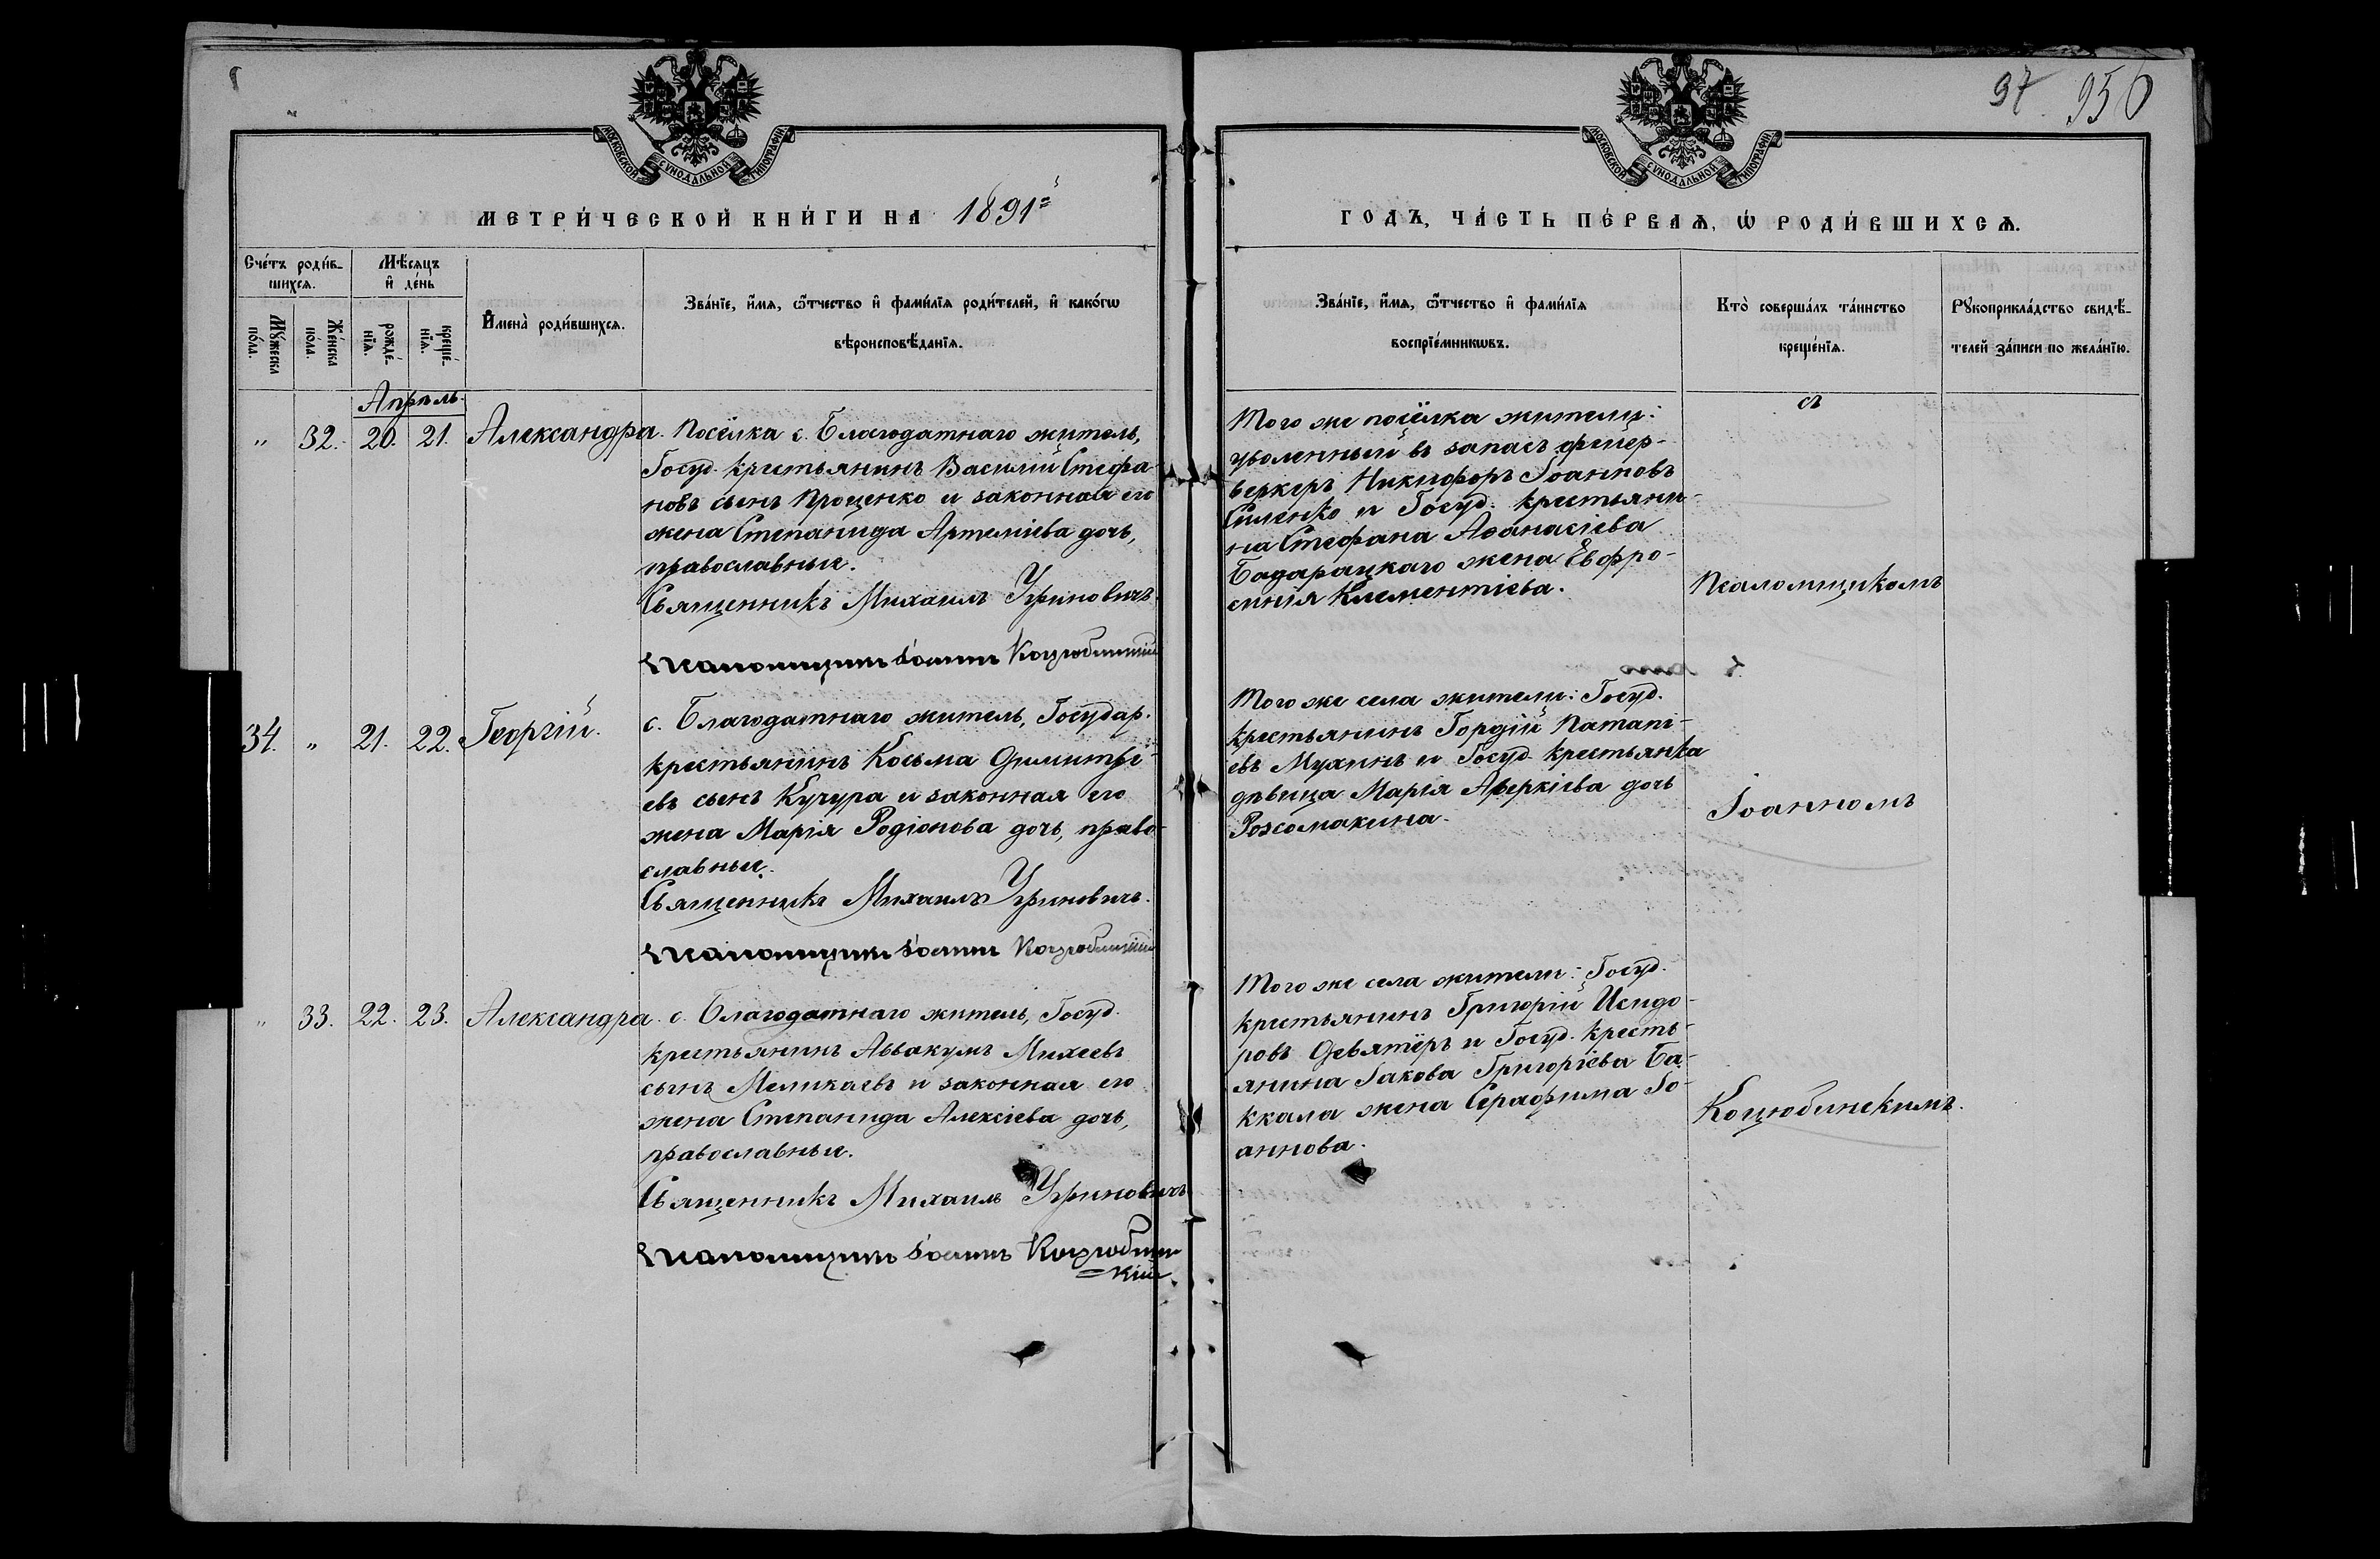 97. 956
МОСКОВСКОЙ СѴНОДАЛЬНОЙ ТИПОГРАФІИ
МЕТРИ́ЧЕСКОЙ КНИ́ГИ НА 1891й
Сче́тъ роди́вшихсѧ.
Мѣ́сѧцъ и҆ де́нь
Мꙋ́жеска по́ла.
Же́нска по́ла.
рожде́нїѧ.
креще́нїѧ.
И҆мена̀ роди́вшихсѧ.
Зва́нїе, и҆́мѧ, ѻ҆́тчество и҆ фами́лїѧ роди́телей, и҆ како́гѡ
вѣроисповѣ́данїѧ.
Апрѣль
„ 32. 20. 21. Александра. Посёлка с. Благодатнаго житель,
Госуд. крестьянинъ Василій Стефа-
новъ сынъ Проценко и законная его
жена Степанида Артеміева дочь,
православные.
Священникъ Михаилъ Угриновичъ.
Псаломщикъ Іоаннъ Коцюбинскій
34. „ 21. 22. Георгій. с. Благодатнаго житель, Государ.
крестьянинъ Косьма Димитрі-
евъ сынъ Кучура и законная его
жена Марія Родіонова дочь, право-
славные.
Священникъ Михаилъ Угриновичъ.
Псаломщикъ Іоаннъ Коцюбинскій
„ 33. 22. 23. Александра. с. Благодатнаго житель, Госуд.
крестьянинъ Аввакумъ Михеевъ
сынъ Меликаевъ и законная его
жена Степанида Алексіева дочь,
православные.
Священникъ Михаилъ Угриновичъ
Псаломщикъ Іоаннъ Коцюбин-
=скій
МОСКОВСКОЙ СѴНОДАЛЬНОЙ ТИПОГРАФІИ
ГОДЪ, ЧА́СТЬ ПЕ́РВАѦ, Ѡ҆ РОДИ́ВШИХСѦ.
Зва́нїе, и҆́мѧ, ѻ҆́тчество и҆ фами́лїѧ
воспрїе́мникѡвъ.
Кто̀ соверша́лъ та́инство
креще́нїѧ.
Рꙋкоприкла́дство свидѣ́-
телей за́писи по жела́нїю.
Того же посёлка жители:
уволенный въ запасъ фейер-
веркеръ Никифоръ Іоанновъ
Силенко и Госуд. крестьяни-
на Стефана Аѳанасіева
Бадарацкаго жена Евфро-
синія Клементіева.
Того же села жители: Госуд.
крестьянинъ Гордій Patапі-
евъ Мухинъ и Госуд. крестьянка
дѣвица Марія Аверкіева дочь
Россомакина.
Того же села жители: Госуд.
крестьянинъ Григорій Исидо-
ровъ Девятёръ и Госуд. кресть-
янина Іакова Григоріева Ба-
ккала жена Серафима Іо-
аннова.
съ
Псаломщикомъ
Іоанномъ
Коцюбинскимъ.